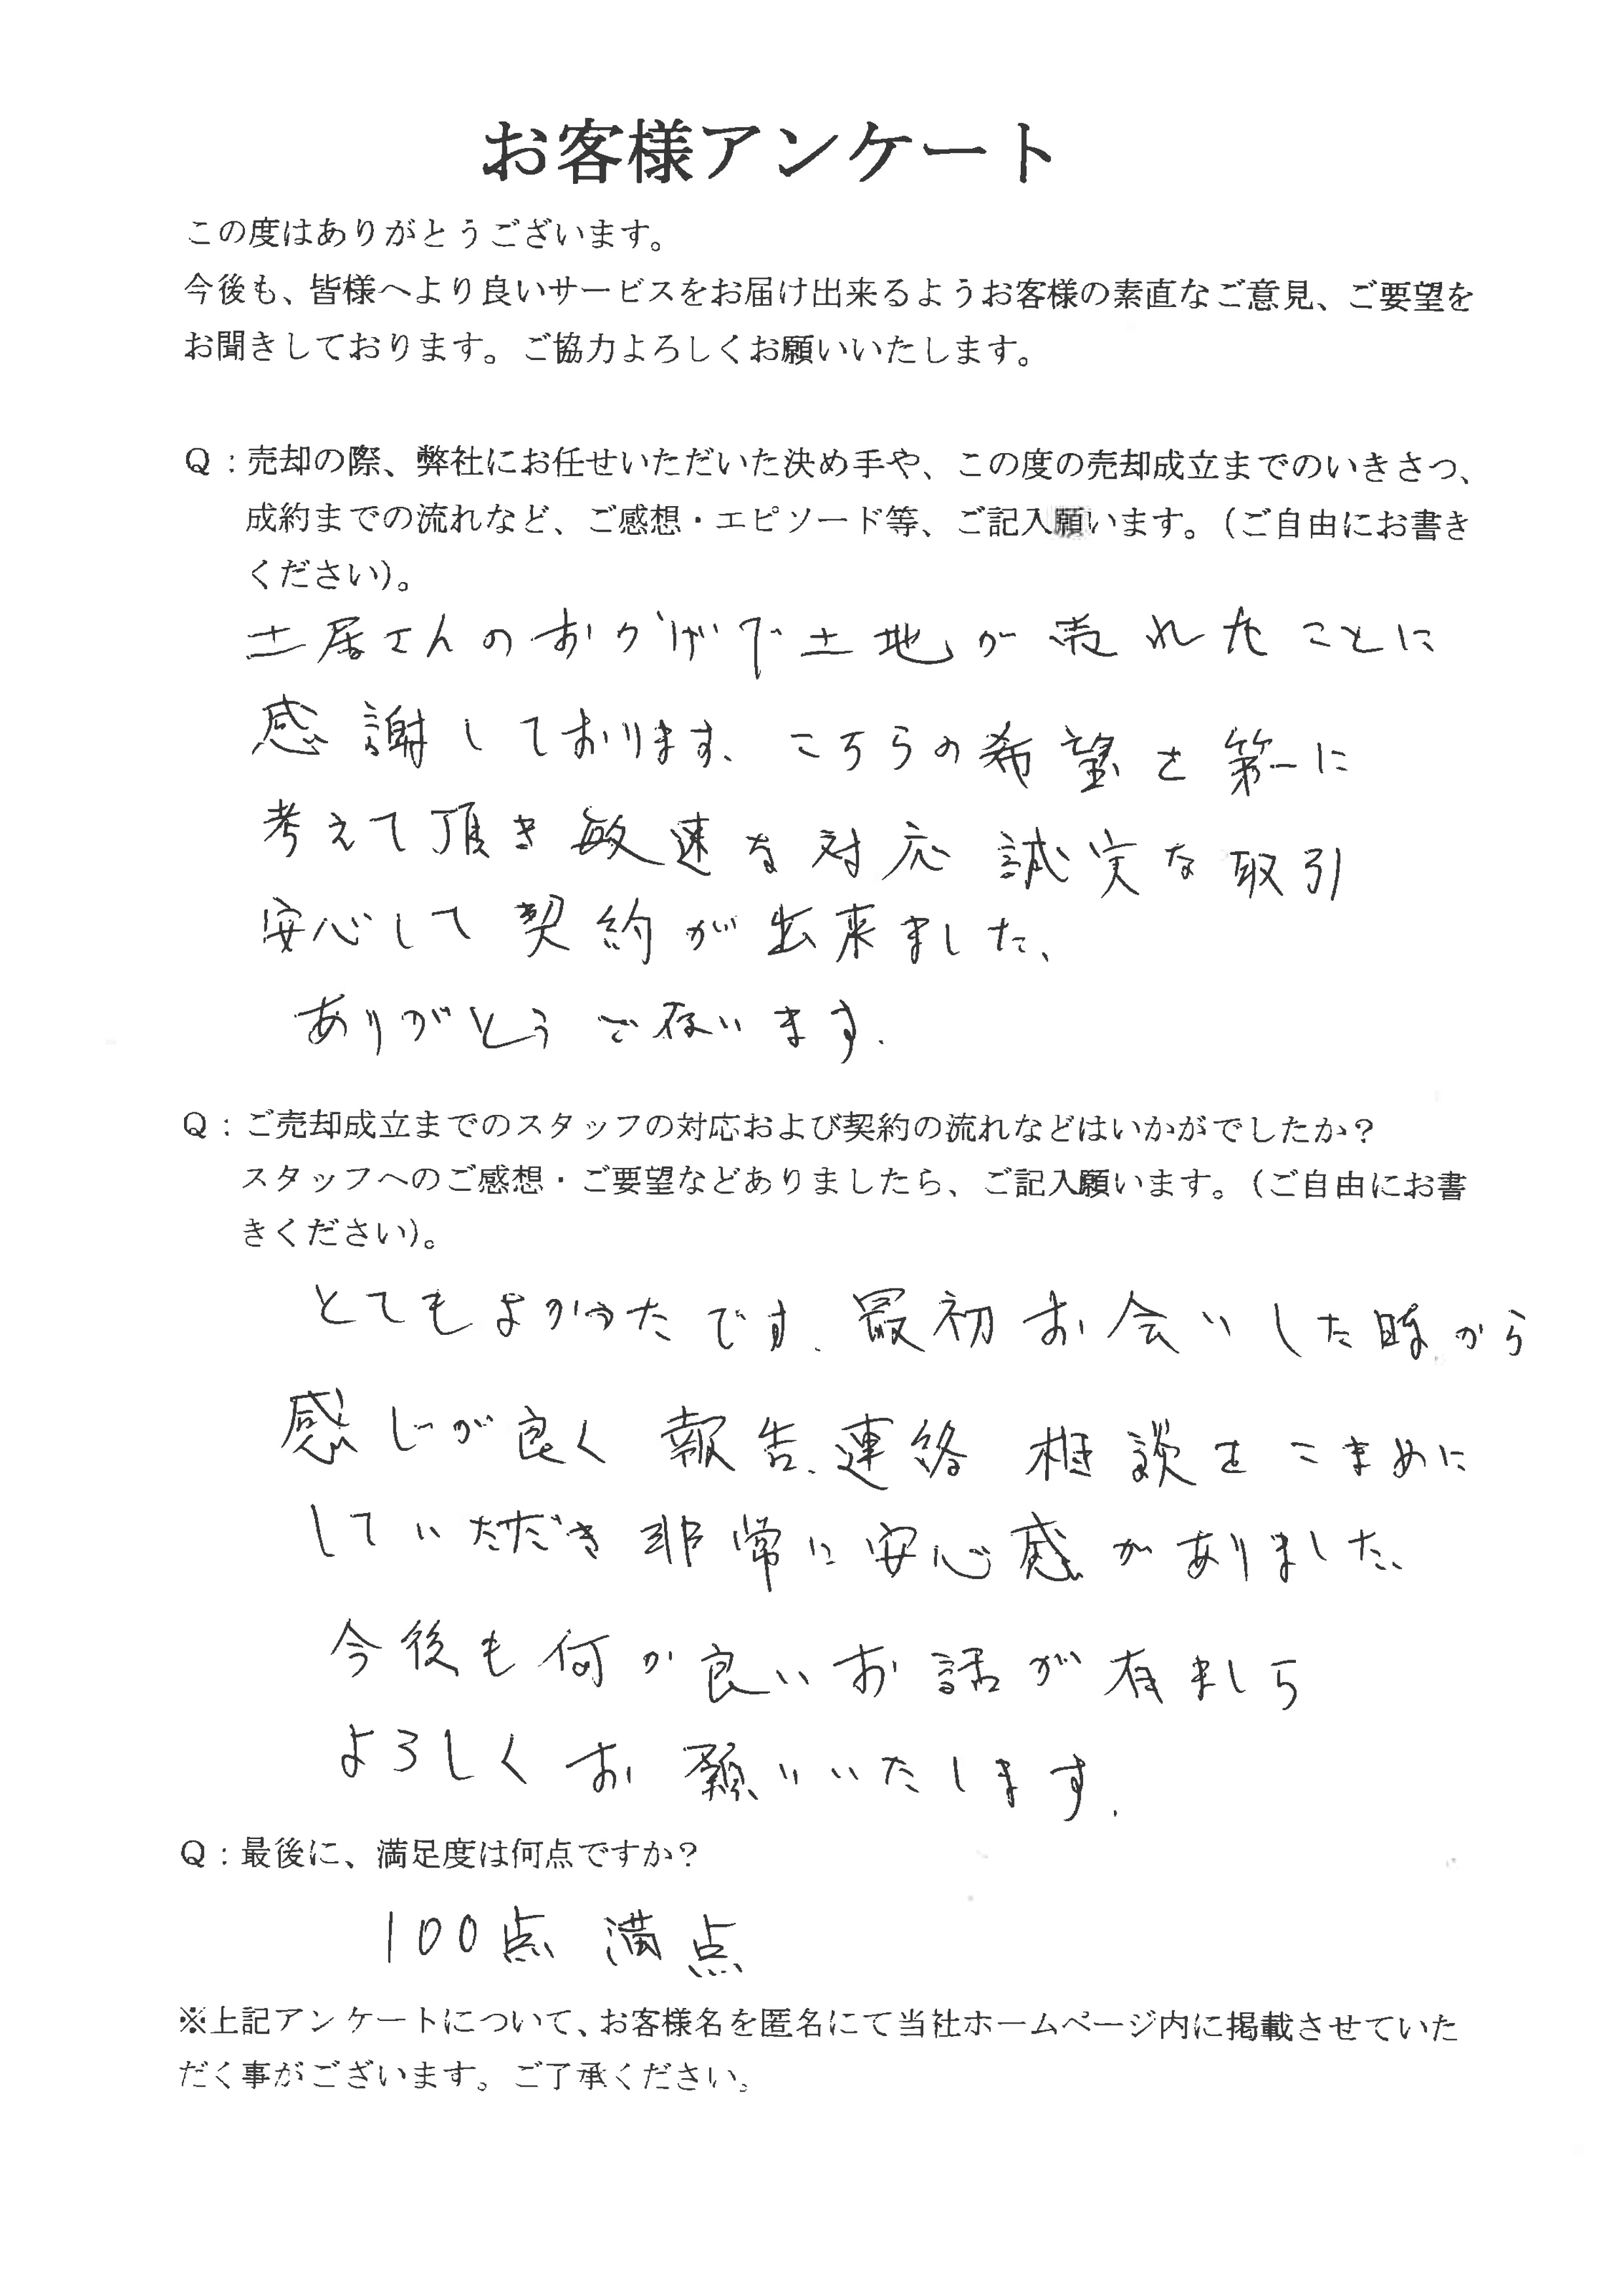 お客様アンケート
この度はありがとうございます。
今後も、皆様へより良いサービスをお届け出来るようお客様の素直なご意見、ご要望を
お聞きしております。ご協力よろしくお願いいたします。
Q：売却の際、弊社にお任せいただいた決め手や、この度の売却成立までのいきさつ、
成約までの流れなど、ご感想・エピソード等、ご記入願います。（ご自由にお書き
ください）。
土居さんのおかげで土地が売れたことに
感謝しております、こちらの希望を第一に
考えて頂き敏速な対応 誠実な取引
安心して契約が出来ました、
ありがとうご存います.
Q：ご売却成立までのスタッフの対応および契約の流れなどはいかがでしたか？
スタッフへのご感想・ご要望などありましたら、ご記入願います。（ご自由にお書
きください）。
とてもよかったです. 最初お会いした時から
感じが良く 報告、連絡 相談をこまめに
していただき非常に安心感がありました、
今後も何か良いお話が有ましら
よろしくお願いいたします.
Q：最後に、満足度は何点ですか？
100点 満点
※上記アンケートについて、お客様名を匿名にて当社ホームページ内に掲載させていた
だく事がございます。ご了承ください。